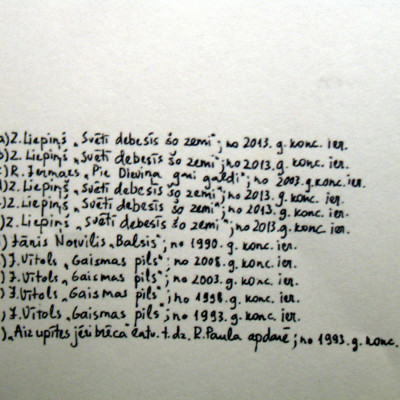 a) Z. Liepiņš „Svētī debesīs šo zemi"; no 2013. g. konc. ier.
b) Z. Liepiņš „Svētī debesīs šo zemi"; no 2013. g. konc. ier.
) R. Jermaks „Pie Dieviņa gari galdi"; no 2003. g. konc. ier.
d) Z. Liepiņš „Svētī debesīs šo zemi"; no 2013. g. konc. ier.
) Z. Liepiņš „Svētī debesīs šo zemi"; no 2013. g. konc. ier.
) Z. Liepiņš „Svētī debesīs šo zemi"; no 2013. g. konc. ier.
) Jānis Norvilis „Balsis"; no 1990. g. konc. ier.
) J. Vītols „Gaismas pils"; no 2008. g. konc. ier.
) J. Vītols „Gaismas pils"; no 2003. g. konc. ier.
) J. Vītols „Gaismas pils"; no 1998. g. konc. ier.
) J. Vītols „Gaismas pils"; no 1993. g. konc. ier.
) „Aiz upītes jēri brēca" latv. t. dz. R. Paula apdarē; no 1993. g. konc.